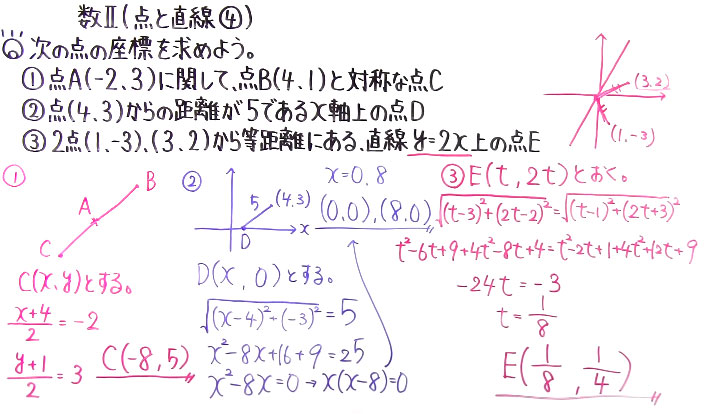 数Ⅱ(点と直線④)
次の点の座標を求めよう。
①点A(-2,3)に関して、点B(4,1)と対称な点C
②点(4,3)からの距離が5であるx軸上の点D
③2点(1,-3)、(3,2)から等距離にある、直線y=2x上の点E
(3,2)
(1,-3)
①
B
A
C
C(x,y)とする。
(x+4)/2=-2
(y+1)/2=3 C(-8,5)
②
5 (4,3)
D x
x=0,8
(0,0),(8,0)
D(x,0)とする。
√((x-4)²+(-3)²)=5
x²-8x+16+9=25
x²-8x=0→x(x-8)=0
③E(t,2t)とおく。
√((t-3)²+(2t-2)²)=√((t-1)²+(2t+3)²)
t²-6t+9+4t²-8t+4=t²-2t+1+4t²+12t+9
-24t=-3
t=1/8
E(1/8,1/4)